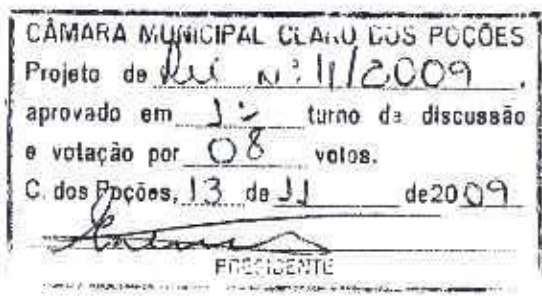 CÂMARA MUNICIPAL CLARO DOS POÇÕES
Projeto de Lei nº 11/2009.
aprovado em 1º turno de discussão
e votação por 08 votos.
C. dos Poções, 13 de 11 de 2009
PRESIDENTE